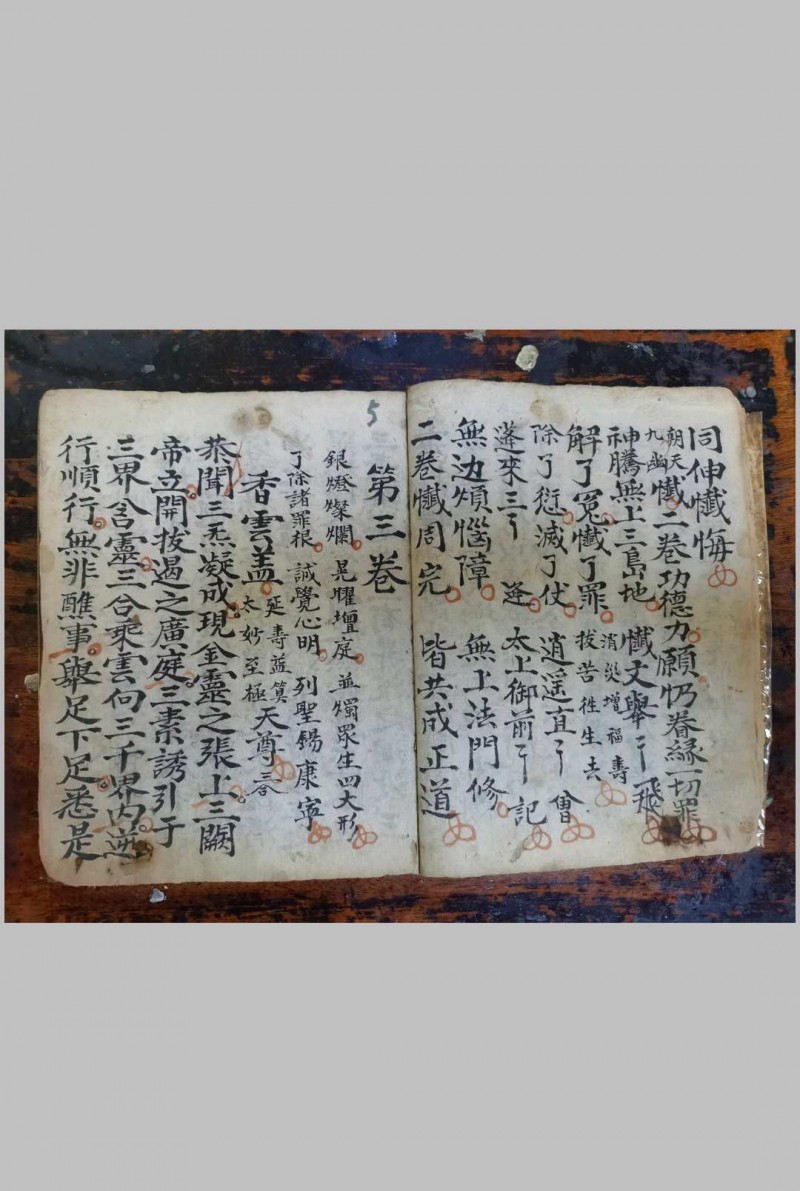 同伸懺悔
朝天九幽懺二卷功德力願
仍眷緣一切罪
神騰無上三島地 懺文舉〻飛
解了冤懺了罪 消災增福壽
拔苦往生去
除了愆滅了伏 逍遥直〻會
蓬來三〻逢 太上御前〻記
無边煩惱障 無上法門修
二卷懺周完 皆共成正道
5
第三卷
銀燈燦爛 晃耀壇庭 並燭眾生四大形
了除諸罪根 誠覺心明 列聖錫康寧
香雲盖 延壽益算
太妙至極 天尊 三合
恭聞三炁凝成現金靈之張上三闕
帝立開拔遏之廣庭三素誘引于
三界含靈三合乘雲向三千界内逆
行順行無非醮事舉足下足悉是